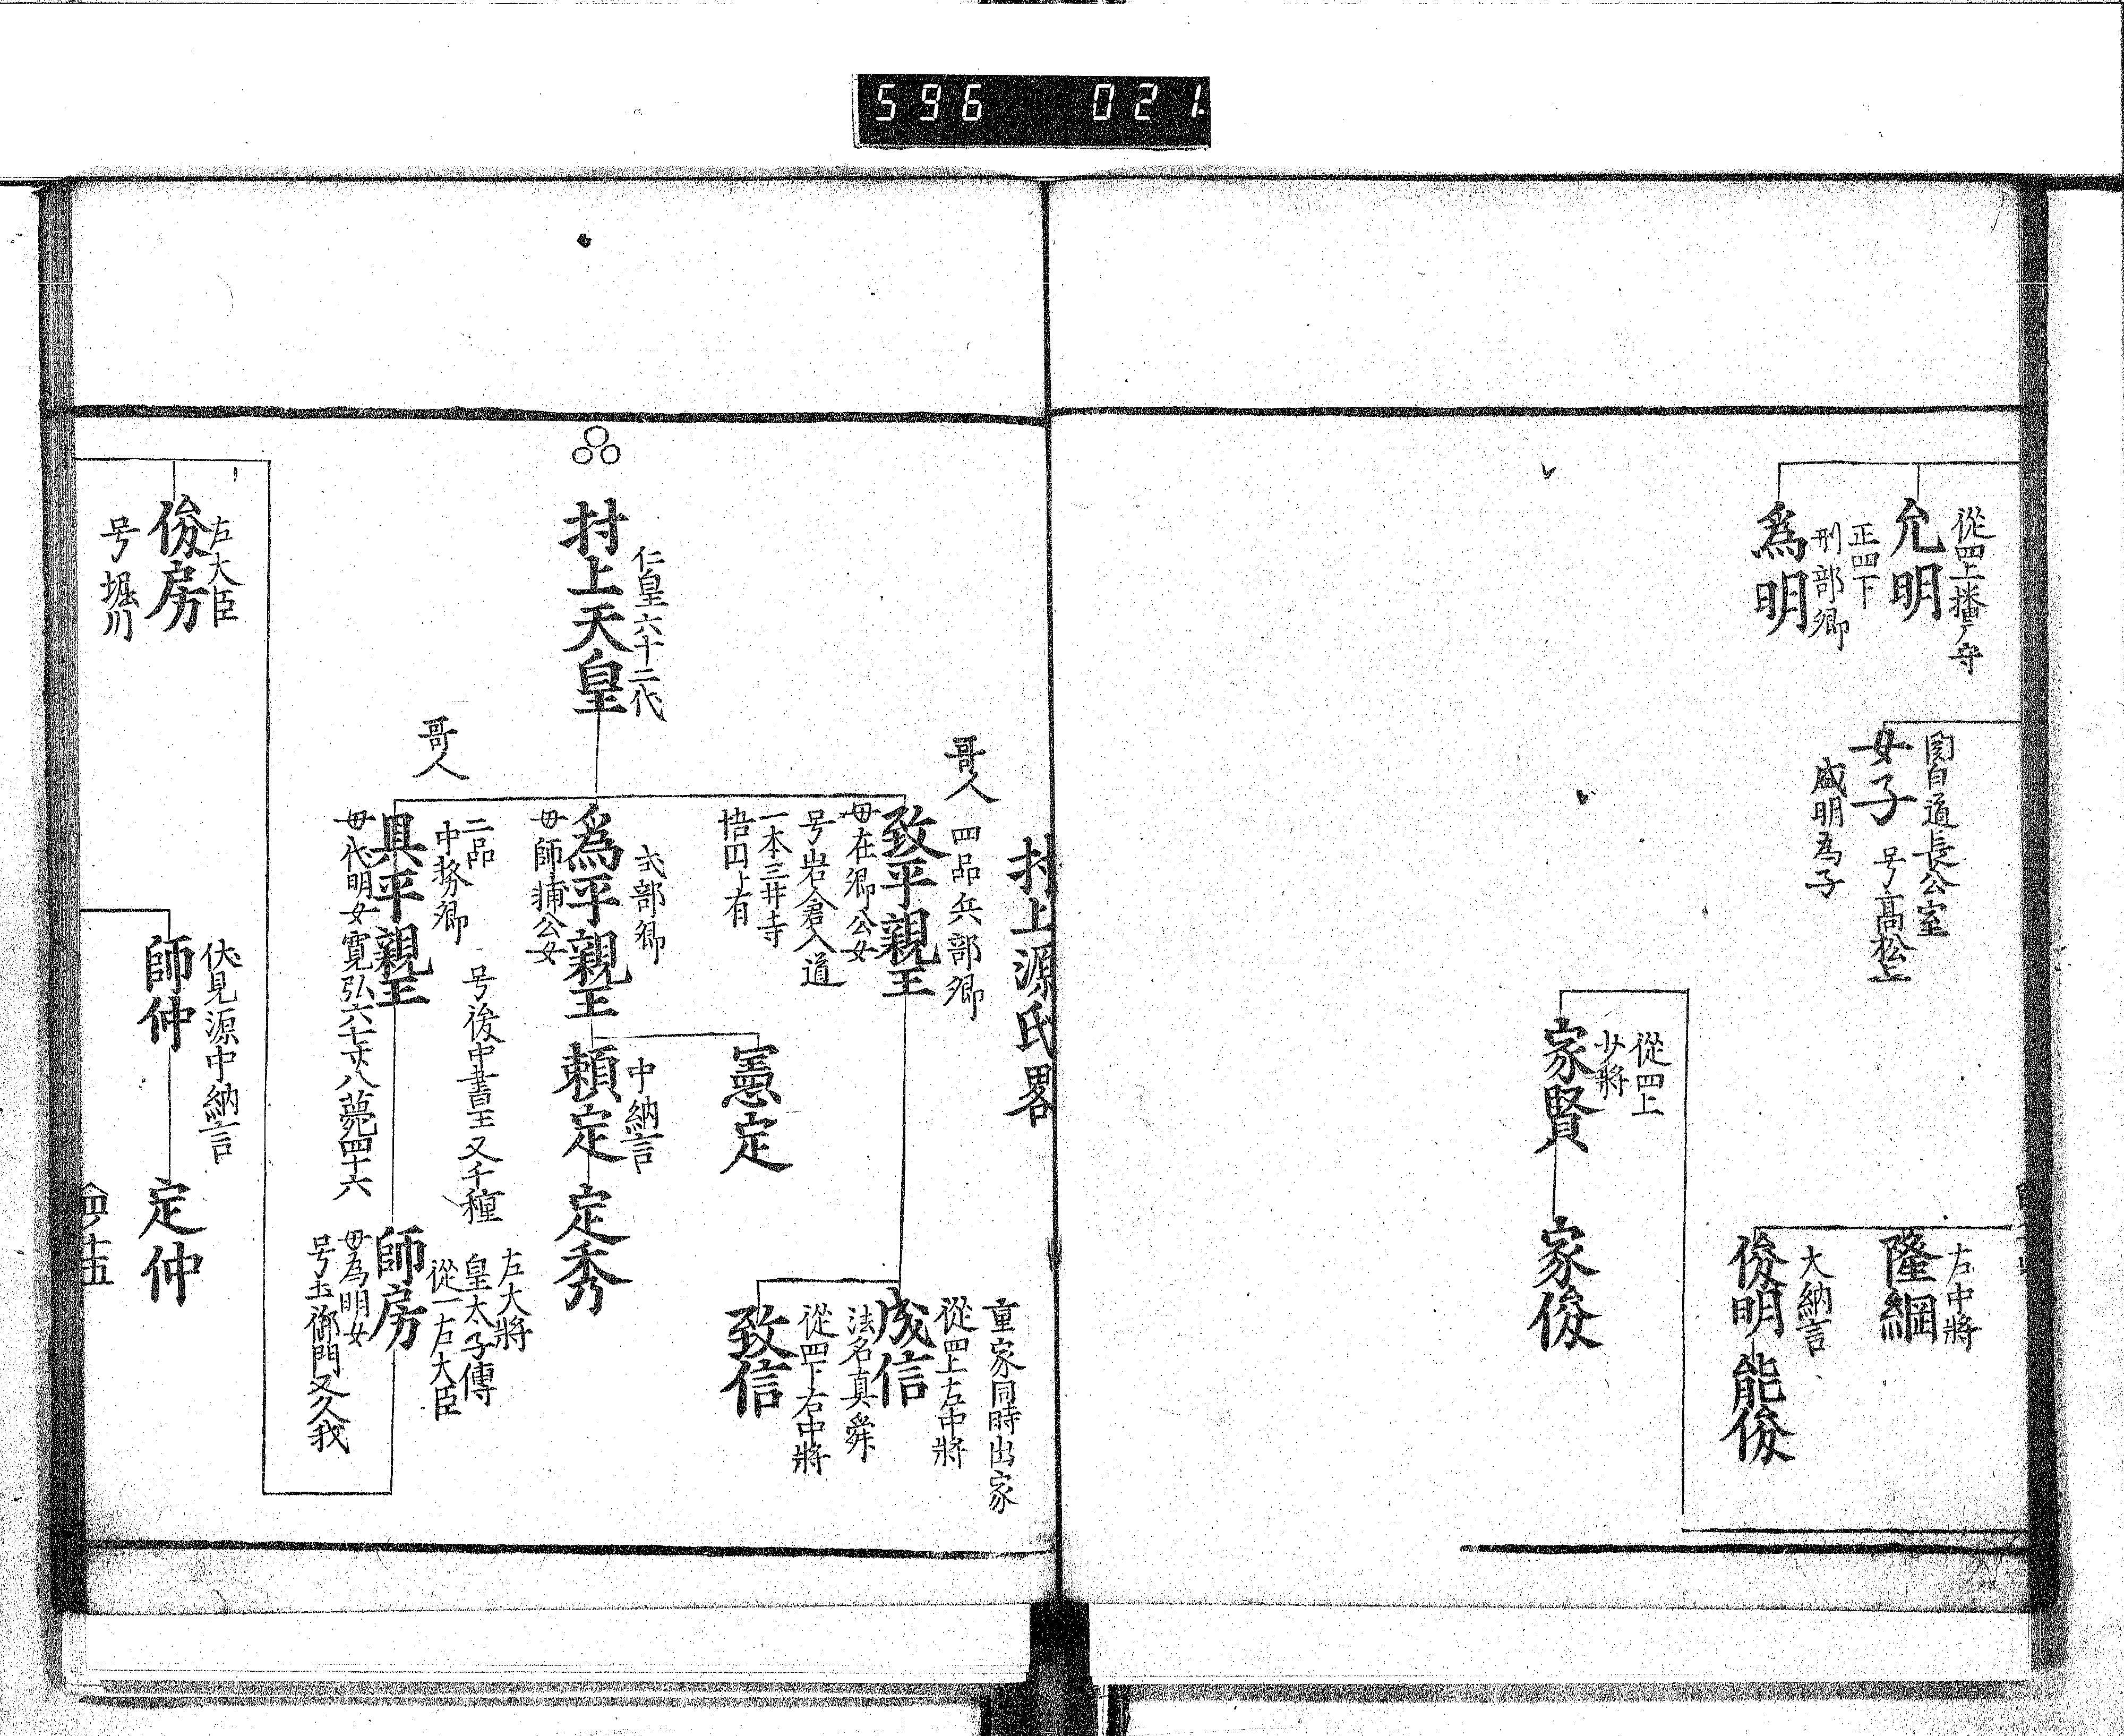 596 021
從四上播戶守
允明
正四下
刑部卿
為明
関白道長公室
女子
号髙松上
盛明為子
右中將
隆綱
大納言
俊明
能俊
從四上
少將
家賢
家俊
村上源氏畧
哥人
四品兵部卿
致平親王
母在衡公女
号岩倉入道
一本三井寺
悟円上有
重家同時出家
從四上左中將
成信
法名真舜
從四下右中將
致信
仁皇六十二代
村上天皇
式部卿
為平親王
母師輔公女
憲定
中納言
頼定
定秀
哥人
二品
中務卿
具平親王
母代明女
寛弘六七廿八薨四十六
号後中書王又千種
左大將
皇太子傳
從一右大臣
師房
母為明女
号土御門又久我
左大臣
俊房
号堀川
伏見源中納言
師仲
定仲